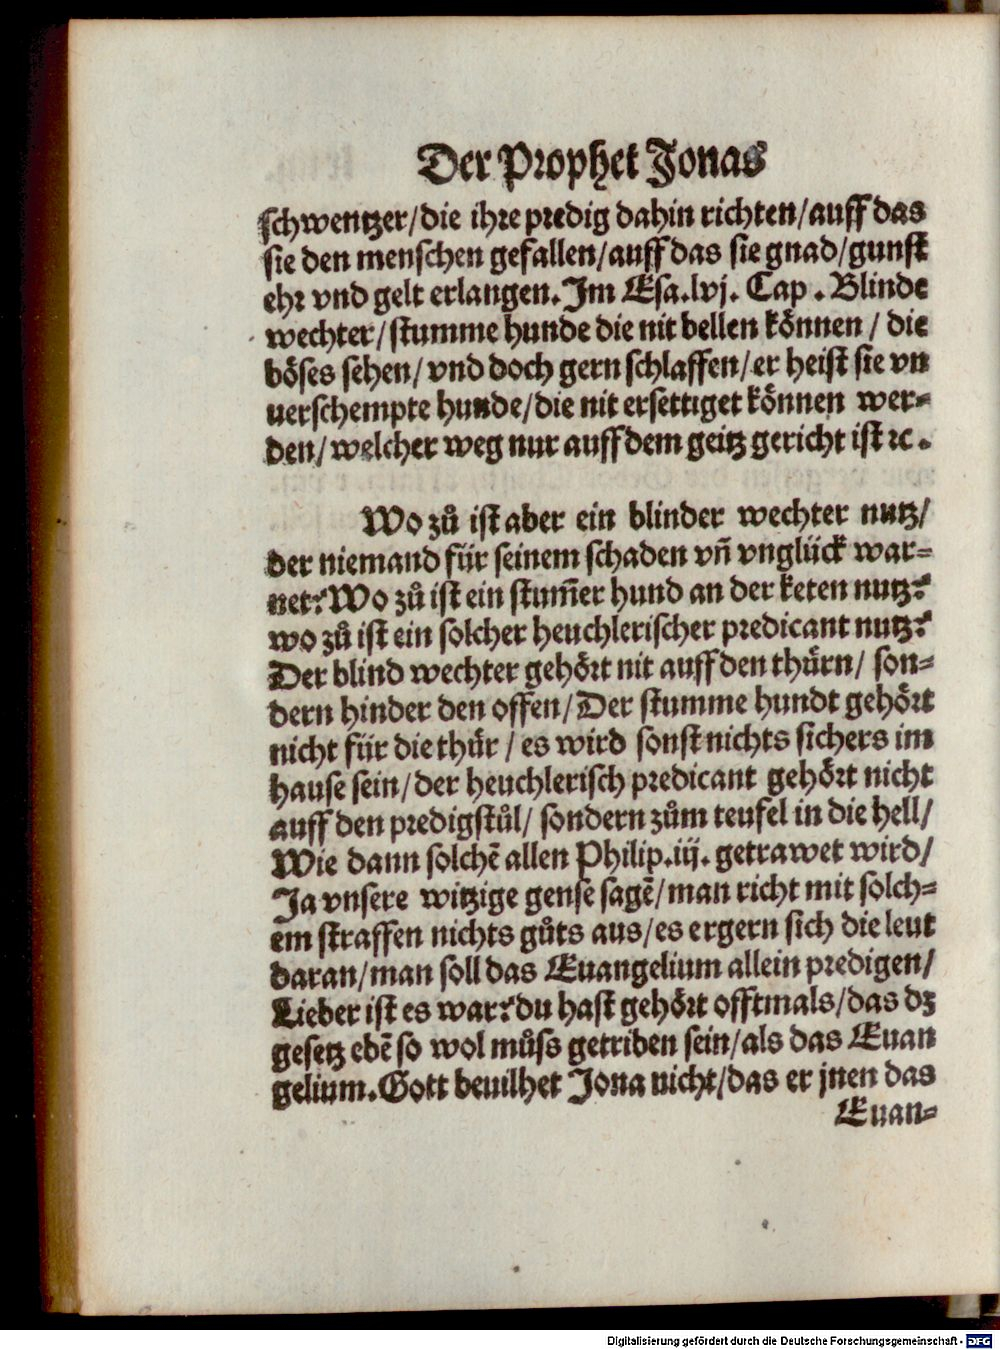 Der Prophet Jonas
schwentzer/die ihre predig dahin richten/auff das
sie den menschen gefallen/auff das sie gnad/gunst
ehr vnd gelt erlangen. Im Esa.lvj. Cap. Blinde
wechter/stumme hunde die nit bellen können/ die
böses sehen/ vnd doch gern schlaffen/er heist sie vn
uerschempte hunde/die nit ersettiget können wer-
den/welcher weg nur auff dem geitz gericht ist ꝛc.
Wo zů ist aber ein blinder wechter nutz/
der niemand für seinem schaden vñ vnglück war-
net? Wo zů ist ein stum̃er hund an der keten nutz?
wo zů ist ein solcher heuchlerischer predicant nutz?
Der blind wechter gehört nit auff den thürn/ son-
dern hinder den offen/Der stumme hundt gehört
nicht für die thür/ es wird sonst nichts sichers im
hause sein/der heuchlerisch predicant gehört nicht
auff den predigstůl/ sondern zům teufel in die hell/
Wie dann solchẽ allen Philip.iij. getrawet wird/
Ja vnsere witzige gense sagẽ/man richt mit solch-
em straffen nichts gůts aus/es ergern sich die leut
daran/man soll das Euangelium allein predigen/
Lieber ist es war? du hast gehört offtmals/das dz
gesetz ebẽ so wol můss getriben sein/als das Euan
gelium. Gott beuilhet Jona nicht/das er jnen das
Euan-
Digitalisierung gefördert durch die Deutsche Forschungsgemeinschaft - DFG